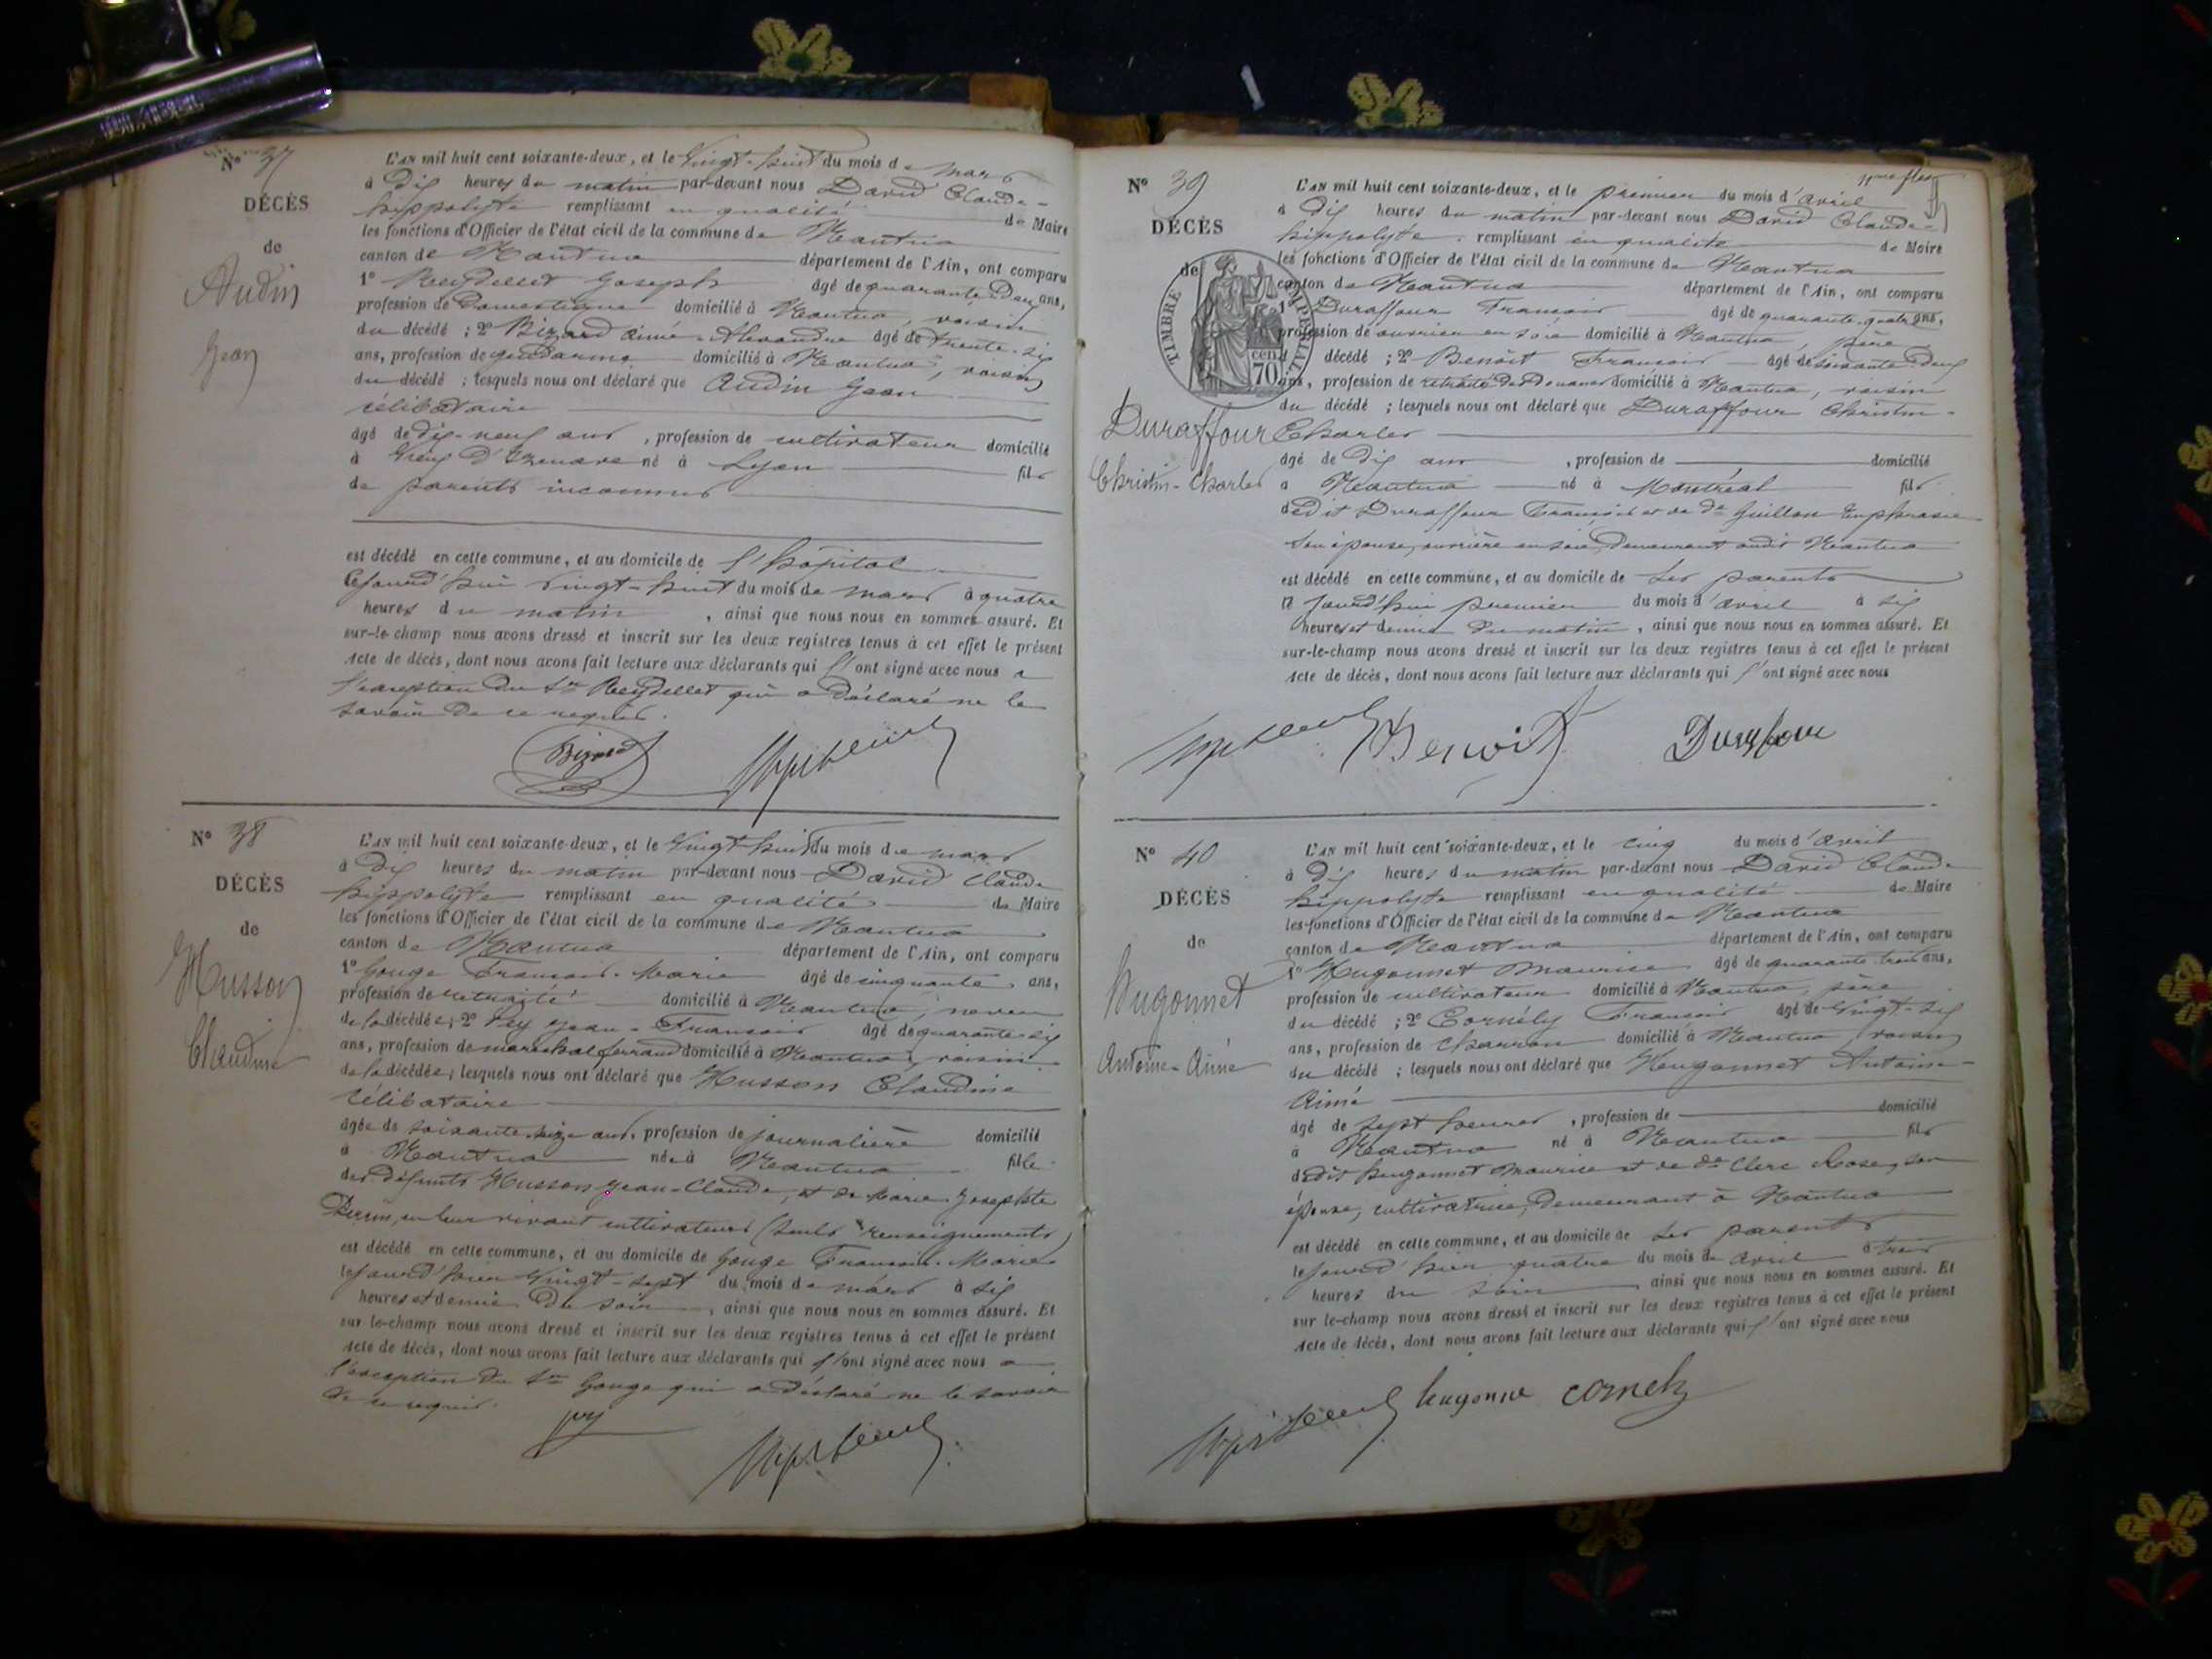 N° 37
DÉCÈS
de
Audin
Jean
L'AN mil huit cent soixante-deux, et le Vingt-huit du mois de mars
à Dix heures du matin par-devant nous David Claude-
hippolyte remplissant en qualité de Maire
les fonctions d'Officier de l'état civil de la commune de Nantua
canton de Nantua département de l'Ain, ont comparu
1° Reydellet Joseph âgé de quarante-Deux ans,
profession de Domestique domicilié à Nantua, voisin
du décédé ; 2° Bizard Aimé-Alexandre âgé de trente-six
ans, profession de gendarme domicilié à Nantua, voisin
du décédé ; lesquels nous ont déclaré que Audin Jean
célibataire
âgé de dix-neuf ans, profession de cultivateur domicilié
à Vieux D'Izenave né à Lyon fils
de parents inconnus
est décédé en cette commune, et au domicile de l'hôpital
cejourd'hui Vingt-huit du mois de mars à quatre
heures du matin, ainsi que nous nous en sommes assuré. Et
sur-le-champ nous avons dressé et inscrit sur les deux registres tenus à cet effet le présent
Acte de décès, dont nous avons fait lecture aux déclarants qui l'ont signé avec nous a
l'exception du Sr Reydellet qui a déclaré ne le
savoir De ce requis.
Bizard
N° 38
DÉCÈS
de
Husson
Claudine
L'AN mil huit cent soixante-deux, et le Vingt-huit du mois de mars
à Dix heures du matin par-devant nous David Claude
hippolyte remplissant en qualité de Maire
les fonctions d'Officier de l'état civil de la commune de Nantua
canton de Nantua département de l'Ain, ont comparu
1° Gouge François-Marie âgé de cinquante ans,
profession de retraité domicilié à Nantua, neveu
de la décédée ; 2° Pey Jean-François âgé de quarante-six
ans, profession de maréchal ferrand domicilié à Nantua, voisin
de la décédée ; lesquels nous ont déclaré que Husson Claudine
célibataire
âgée de soixante-seize ans, profession de journalière domicilié
à Nantua née à Nantua fille
des défunts Husson Jean-Claude, et de Marie Josephte
en leur vivant cultivateurs (seuls renseignements)
est décédé en cette commune, et au domicile de Gouge François-Marie
le jourd'hier Vingt-sept du mois de mars à six
heures et demie Du soir, ainsi que nous nous en sommes assuré. Et
sur-le-champ nous avons dressé et inscrit sur les deux registres tenus à cet effet le présent
Acte de décès, dont nous avons fait lecture aux déclarants qui l'ont signé avec nous a
l'exception du Sr Gouge qui a déclaré ne le savoir
De ce requis.
pey
N° 39
DÉCÈS
de
TIMBRE IMPERIAL
70 cen
Duraffour
Christin-Charles
L'AN mil huit cent soixante-deux, et le premier du mois d'avril
à Dix heures du matin par-devant nous David Claude-
hippolyte remplissant en qualité de Maire
les fonctions d'Officier de l'état civil de la commune de Nantua
canton de Nantua département de l'Ain, ont comparu
1° Duraffour François âgé de quarante-quatre ans,
profession de ouvrier en soie domicilié à Nantua, père
du décédé ; 2° Benoit François âgé de soixante-deux
ans, profession de retraité des Douanes domicilié à Nantua, voisin
du décédé ; lesquels nous ont déclaré que Duraffour Christin-
Charles
âgé de Dix ans, profession de domicilié
à Nantua né à Montréal fils
dedit Duraffour François et de de Guillon Euphrasie
son épouse, ouvrière en soie, demeurant audit Nantua
est décédé en cette commune, et au domicile de ses parents
ce jourd'hui premier du mois d'avril à six
heures et demie du matin, ainsi que nous nous en sommes assuré. Et
sur-le-champ nous avons dressé et inscrit sur les deux registres tenus à cet effet le présent
Acte de décès, dont nous avons fait lecture aux déclarants qui l'ont signé avec nous
Benoit Duraffour
N° 40
DÉCÈS
de
Hugonnet
Antoine-Aimé
L'AN mil huit cent soixante-deux, et le cinq du mois d'avril
à Dix heures du matin par-devant nous David Claude
hippolyte remplissant en qualité de Maire
les fonctions d'Officier de l'état civil de la commune de Nantua
canton de Nantua département de l'Ain, ont comparu
1° Hugonnet Maurice âgé de quarante-trois ans,
profession de cultivateur domicilié à Nantua, père
du décédé ; 2° Cornély François âgé de Vingt-six
ans, profession de charron domicilié à Nantua, voisin
du décédé ; lesquels nous ont déclaré que Hugonnet Antoine-
Aimé
âgé de sept heures, profession de domicilié
à Nantua né à Nantua fils
dedit hugonnet Maurice et de de Clerc Rose, son
épouse, cultivatrice, demeurant à Nantua
est décédé en cette commune, et au domicile de ses parents
le jourd'hier quatre du mois de avril à trois
heures du soir ainsi que nous nous en sommes assuré. Et
sur le-champ nous avons dressé et inscrit sur les deux registres tenus à cet effet le présent
Acte de décès, dont nous avons fait lecture aux déclarants qui l'ont signé avec nous
hugonne cornely